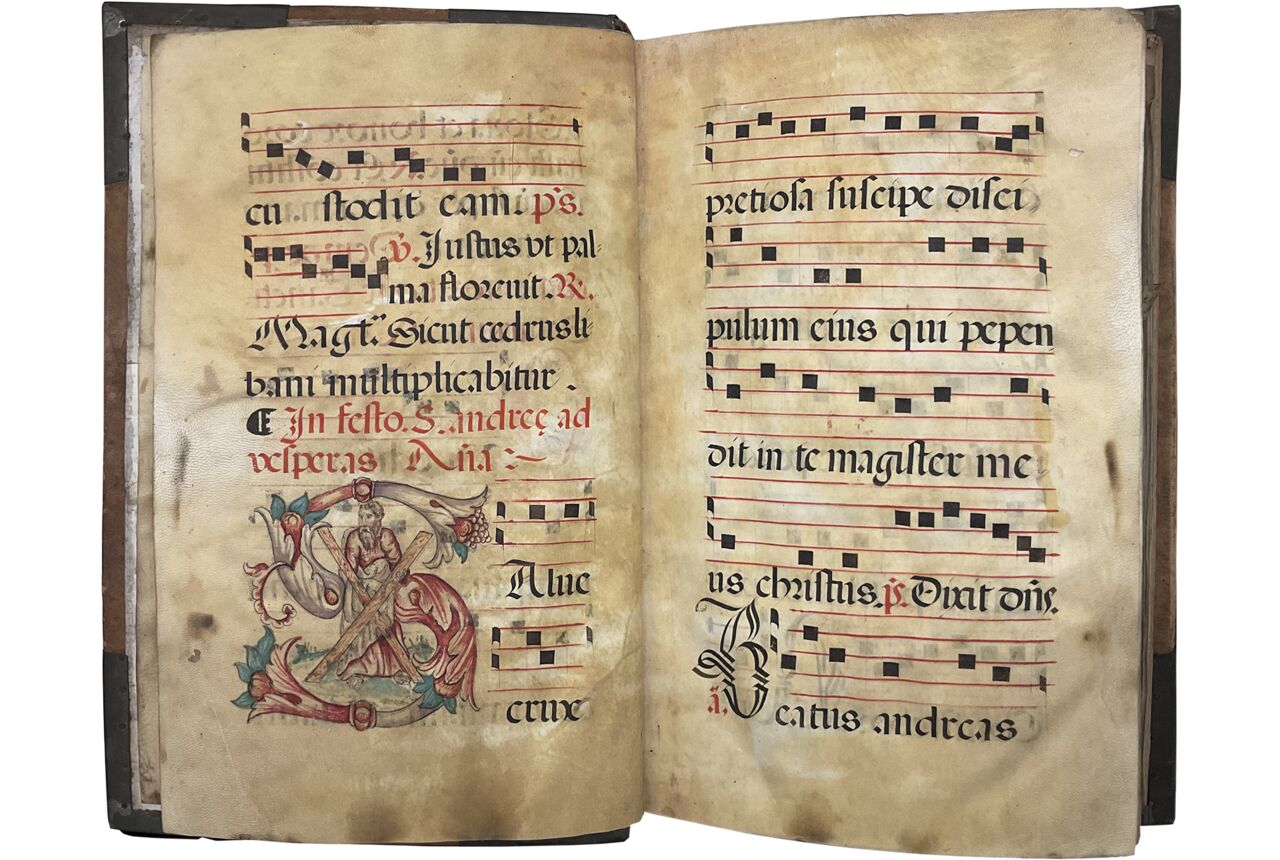 cu stodit eam. ps.
V. Justus vt pal-
ma floreuit. R.
Magt. Sicut cedrus li-
bani multiplicabitur.
In festo. S. andreę ad
vesperas Aña
S Alue
crux
pretiosa suscipe disci
pulum eius qui pepen
dit in te magister me
us christus. ps. Dixit dñs.
ã. Beatus andreas